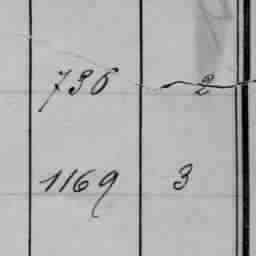 736 2
1169 3